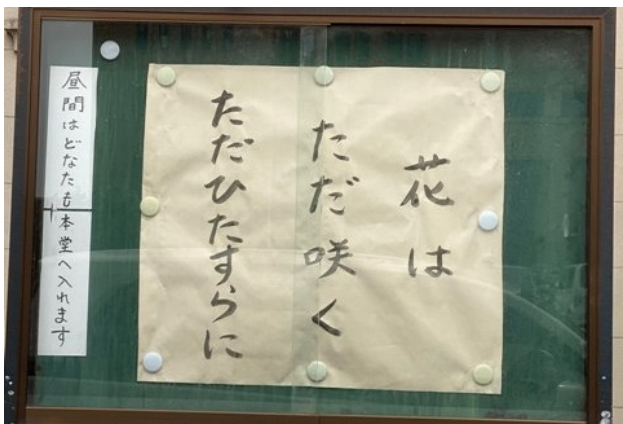 花は
ただ咲く
ただひたすらに
昼間はどなたも本堂へ入れます